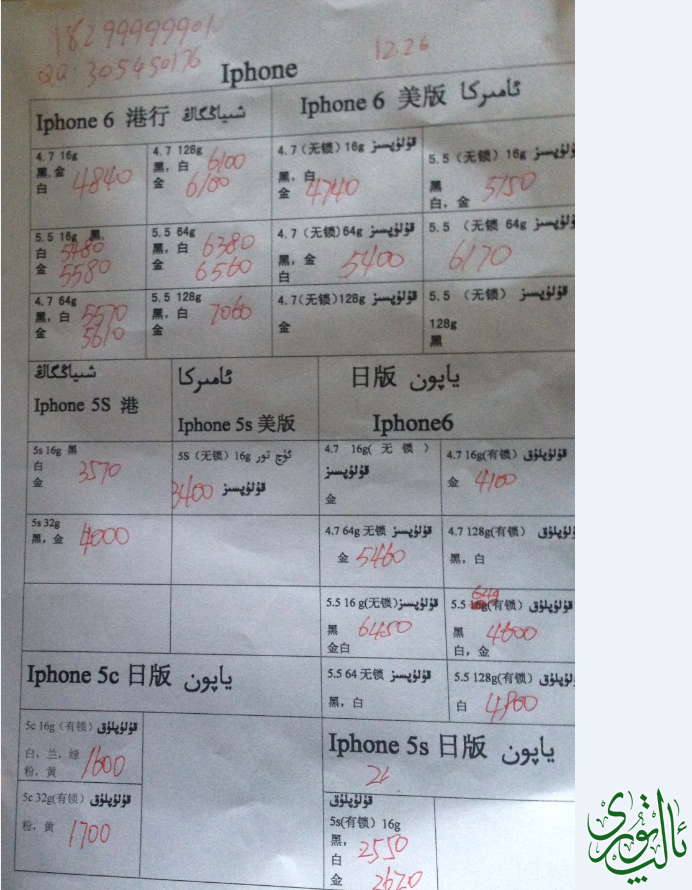 18299999901
QQ.305450176
12.26
Iphone
Iphone 6 港行 شياڭگاڭ
Iphone 6 美版 ئامىركا
4.7 16g
黑,金
白
4840
4.7 128g
黑, 白 6100
金 6100
4.7(无锁)16g قۇلۇپسىز
黑, 白,
金 4740
5.5(无锁) 16g قۇلۇپسىز
黑
白, 金 5150
5.5 16g 黑,
白 5480
金 5580
5.5 64g
黑, 白 6380
金 6560
4.7 (无锁)64g قۇلۇپسىز
黑, 金
白 5400
5.5 (无锁 64g قۇلۇپسىز
6170
4.7 64g
黑, 白 5570
金 5610
5.5 128g
黑, 白 7060
金
4.7(无锁)128g قۇلۇپسىز
金
5.5 (无锁) قۇلۇپسىز
128g
黑
شىياڭگاڭ
Iphone 5S 港
ئامىركا
Iphone 5s 美版
日版 ياپون
Iphone6
5s 16g 黑
白
金
3570
5S (无锁) 16g ئۈچ تور
3400 قۇلۇپسىز
4.7 16g(无锁)
قۇلۇپسىز
金
4.7 16g(有锁) قۇلۇپلۇق
金 4100
5s 32g
黑, 金 4000
4.7 64g 无锁 قۇلۇپسىز
金 5460
4.7 128g(有锁) قۇلۇپلۇق
黑, 白
5.5 16 g(无锁) قۇلۇپسىز
黑 6450
金白
64g
5.5 16g(有锁) قۇلۇپلۇق
黑 4600
白, 金
Iphone 5c 日版 ياپون
5.5 64 无锁 قۇلۇپسىز
黑, 白
5.5 128g(有锁) قۇلۇپلۇق
白 4860
5c 16g (有锁) قۇلۇپلۇق
白, 兰, 绿
粉, 黄 1600
Iphone 5s 日版 ياپون
5c 32g(有锁) قۇلۇپلۇق
粉, 黄 1700
قۇلۇپلۇق
5s(有锁) 16g
黑,
白 2550
金 2620